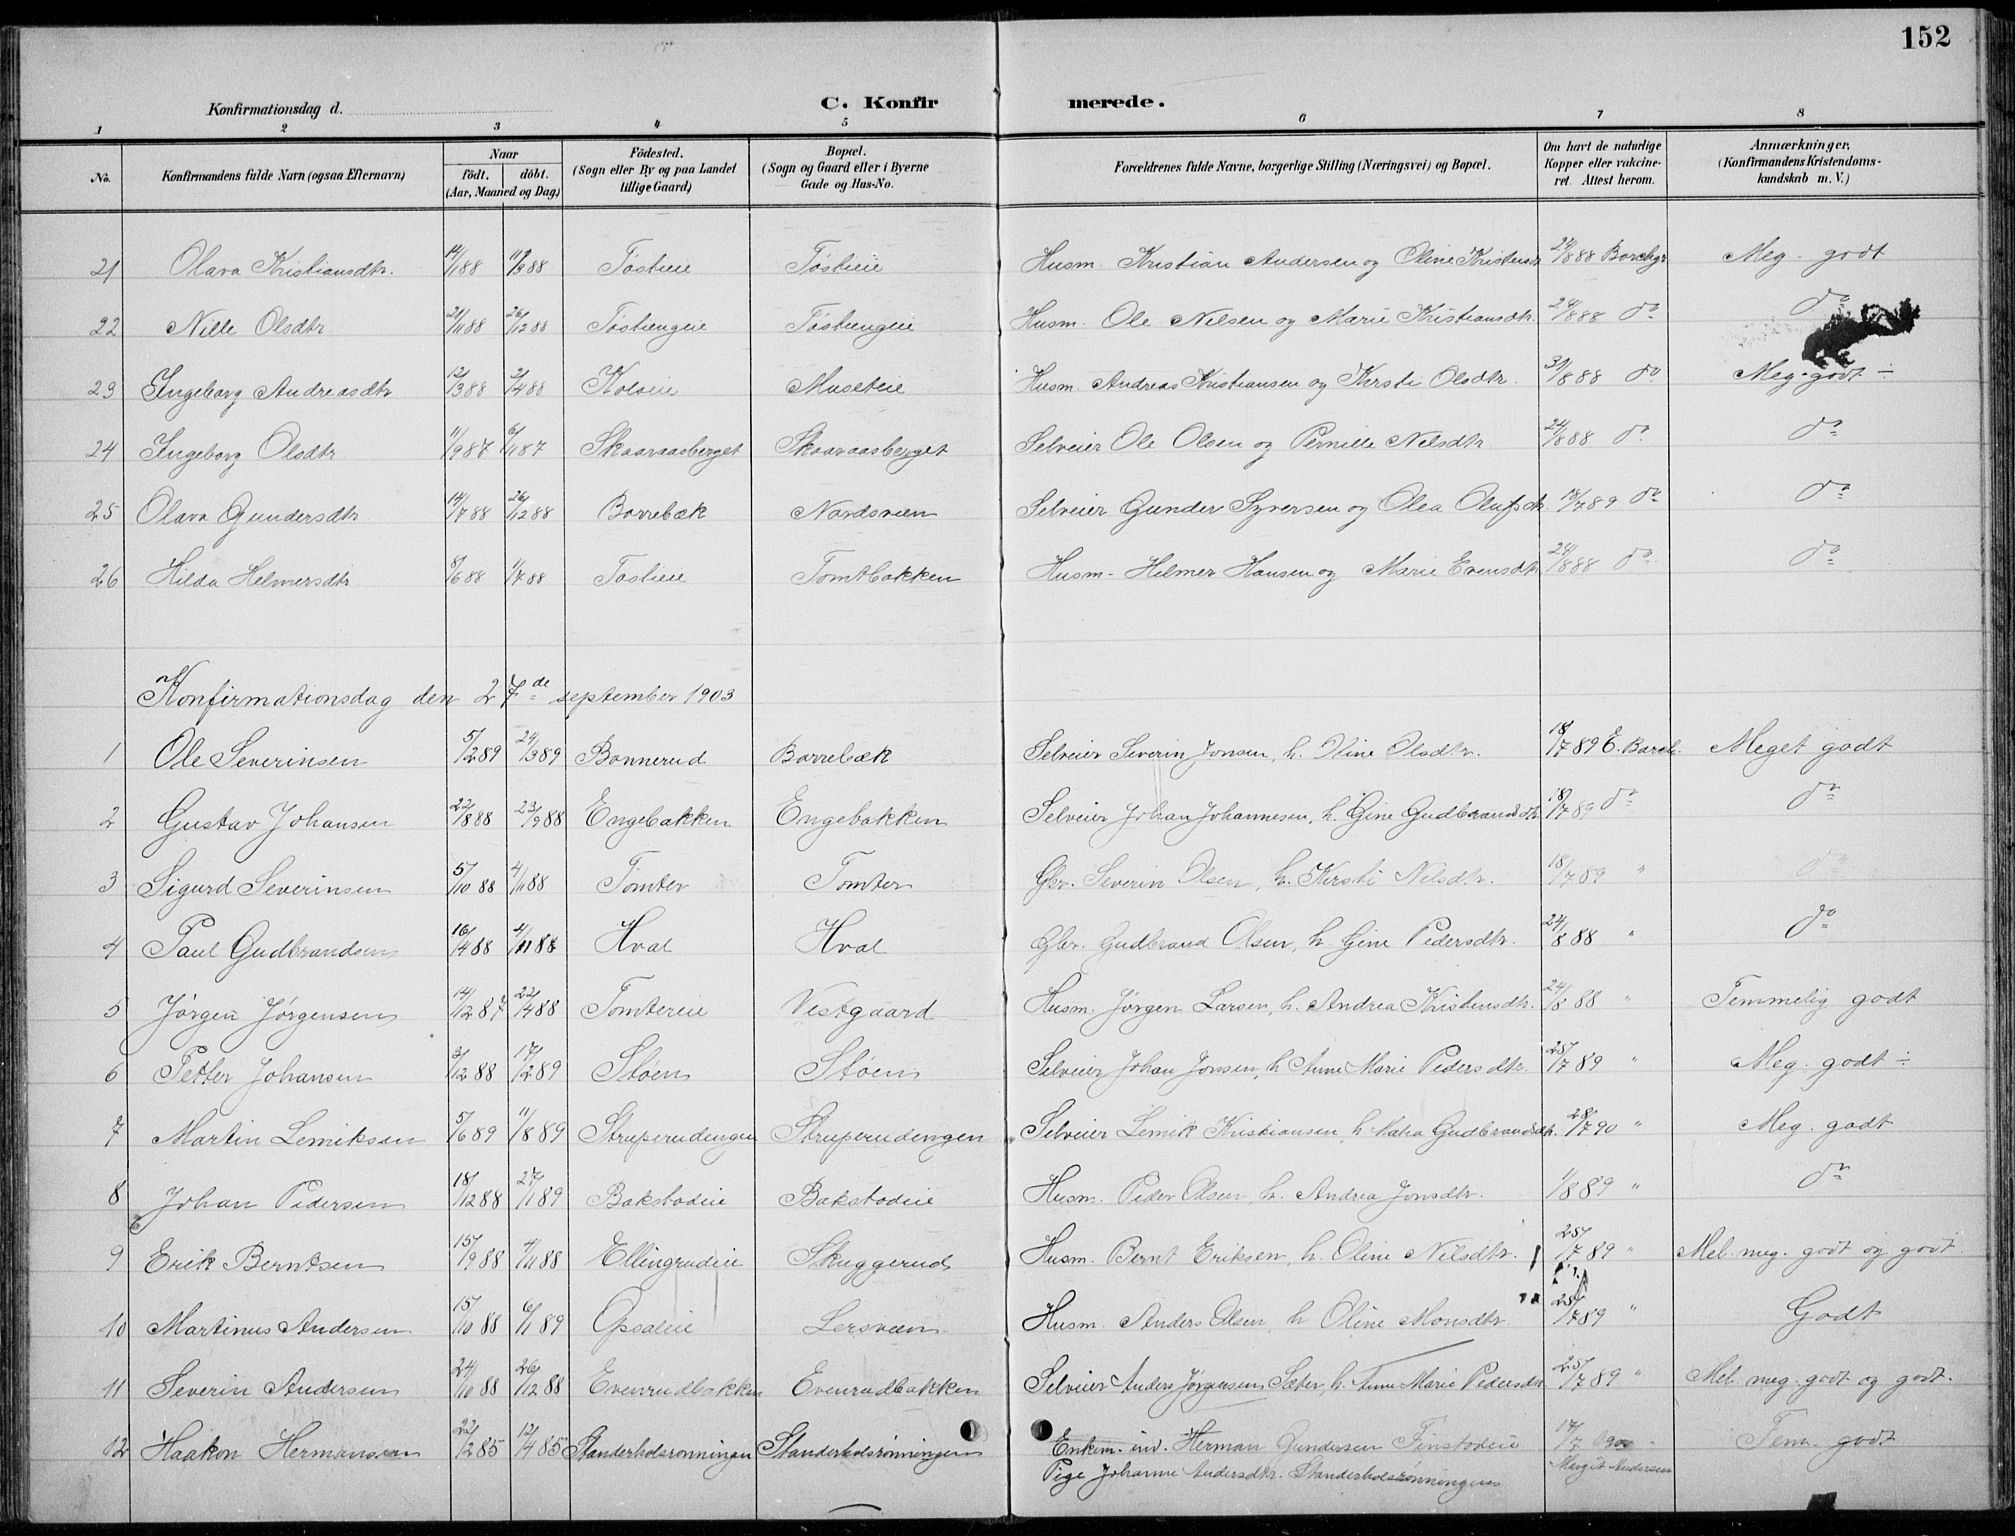 152
Konfirmationsdag d.
C. Konfirmerede.
1 2 3 4 5 6 7 8
No. Konfirmandens fulde Navn (ogsaa Efternavn) Naar født. døbt. (Aar, Maaned og Dag) Fødested. (Sogn eller By og paa Landet tillige Gaard) Bopæl. (Sogn og Gaard eller i Byerne Gade og Hus-No. Forældrenes fulde Navne, borgerlige Stilling (Næringsvei) og Bopæl. Om havt de naturlige Kopper eller vakcineret. Attest herom. Anmærkninger. (Konfirmandens Kristendomskundskab m. V.)
21 Olava Kristiansdtr. 14/1 88 11/3 88 Tøstieie Tøstieie Husm. Kristian Andersen og Oline Kristensdtr 24/8 88 Borchgr Meg. godt
22 Nille Olsdtr 21/11 88 26/12 88 Tøstiengeie Tøstiengeie Husm. Ole Nilsen og Marie Kristiansdtr. 24/8 88 do do
23 Ingeborg Andreasdtr 12/3 88 2/4 88 Kolseie Museteie Husm. Andreas Kristiansen og Kersti Olsdtr. 31/8 88 do Meg. godt ÷
24 Ingeborg Olsdtr 11/9 87 6/11 87 Skaaraasberget Skaaraasberget Selveier Ole Olsen og Pernille Nilsdtr 24/8 88 do do
25 Olava Gundersdtr 14/7 88 26/12 88 Borrebæk Nordsveen Selveier Gunder Syversen og Olea Olufsdtr. 18/7 89 do do
26 Hilda Helmersdtr 8/6 88 1/7 88 Tostieie Tomtbakken Husm. Hilmer Hansen og Marie Evensdtr. 24/8 88 do do
Konfirmationsdag den 27de september 1903
1 Ole Severinsen 5/2 89 24/3 89 Bonnerud Borrebæk Selveier Severin Jonsen, h. Oline Olsdtr. 18/7 89 E. Borch. Meget godt
2 Gustav Johansen 22/8 88 23/9 88 Engebakken Engebakken Selveier Johan Johannesen, h. Gine Gudbrandsdtr. 18/7 89 do do
3 Sigurd Severinsen 5/10 88 4/11 88 Tomter Tomter Gbr. Severin Olsen, h. Kersti Nilsdtr. 18/7 89 " do
4 Paul Gudbrandsen 16/4 88 4/11 88 Hval Hval Gbr. Gudbrand Olsen, h. Gine Pedersdtr. 24/8 88 " do
5 Jørgen Jørgensen 14/12 87 22/4 88 Tomtereie Vestgaard Husm. Jørgen Larsen, h. Andrea Kristensdtr. 24/8 88 " Temmelig godt
6 Petter Johansen 3/12 88 17/2 89 Støen Støen Selveier Johan Jonsen, h. Anne Marie Pedersdtr. 25/7 89 " Meg. godt ÷
7 Martin Lemiksen 5/6 89 11/8 89 Struperudengen Struperudengen Selveier Lemik Kristiansen, h. Gudbrandsdtr. 28/7 90 " Meg. godt
8 Johan Pedersen 18/12 88 27/1 89 Bakstadeie Bakstadeie Husm. Peder Olsen, h. Andrea Jonsdtr. 1/8 89 " do
9 Erik Berntsen 15/9 88 4/11 88 Ellingrudeie Skuggerud Husm. Bernt Eriksen, h. Oline Nilsdtr. 25/7 89 " Mel. meg. godt og godt
10 Martinus Andersen 15/10 88 6/1 89 Opsaleie Lersveen Husm. Anders Olsen, h. Oline Monsdtr. 25/7 89 " Godt
11 Severin Andersen 24/10 88 26/12 88 Evenrudbakken Evenrudbakken Selveier Anders Jørgensen Sæter, h. Anne Marie Pedersdtr 25/7 89 " Mel. meg. godt og godt.
12 Haakon Hermansen 22/2 85 12/4 85 Standerholsrønningen Standerholsrønningen Enkem. inv. Herman Gundersen Finstadeie 17/7 Tem. godt
Pige Johanne Andersdtr. Standerholsrønningen Margit Andersen